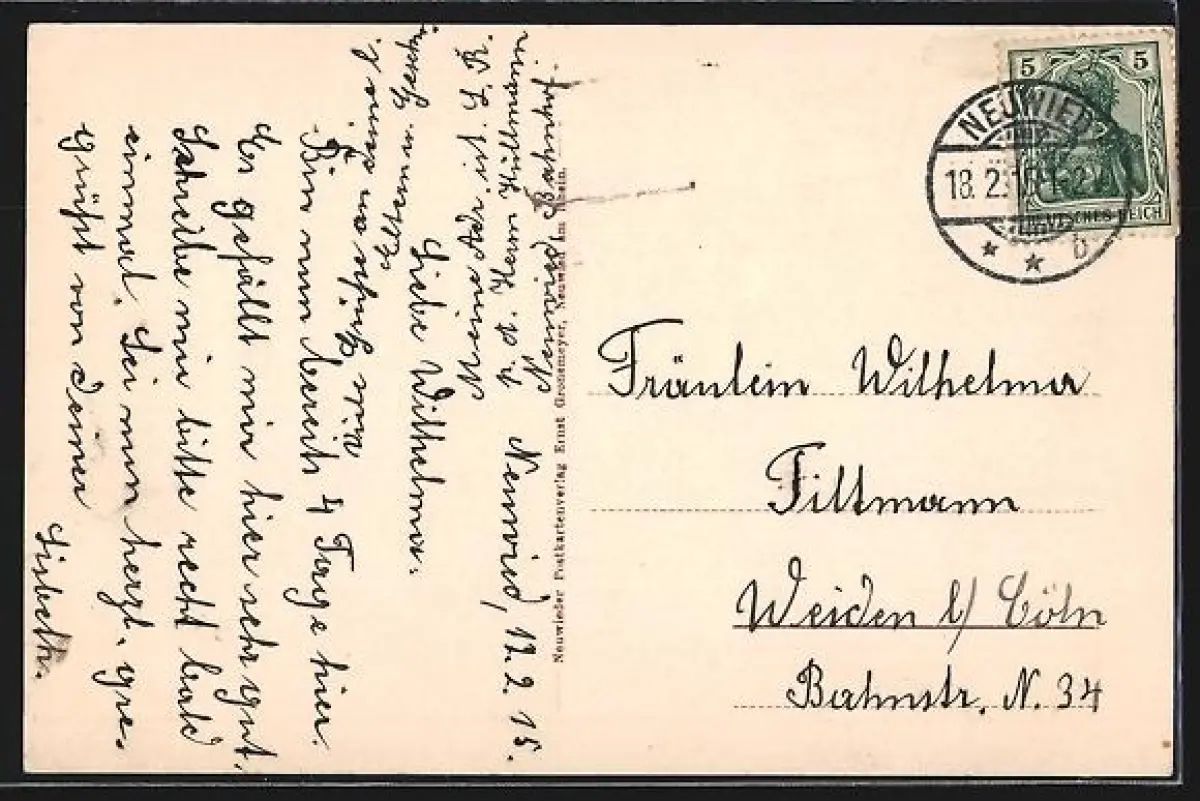 Neuwied, 17. 2. 15.
Liebe Wilhelma.
Bin nun bereits 4 Tage hier.
Es gefällt mir hier sehr gut.
Schreibe mir bitte recht bald
einmal. Sei nun herzl. ge-
grüßt von Deiner
Lisbeth.
viele Grüße an Deine l.
Eltern u. Geschw.
Meine Adr. ist. L. R.
p. A. Herrn Hüttmann
Neuwied Bahnhof.
Neuwieder Postkartenverlag Ernst Grottemeyer, Neuwied am Rhein.
5 5
DEUTSCHES REICH
NEUWIED
18. 2. 15
* * b
Fräulein Wilhelma
Tillmann
Weiden b/ Cöln
Bahnstr. N. 34